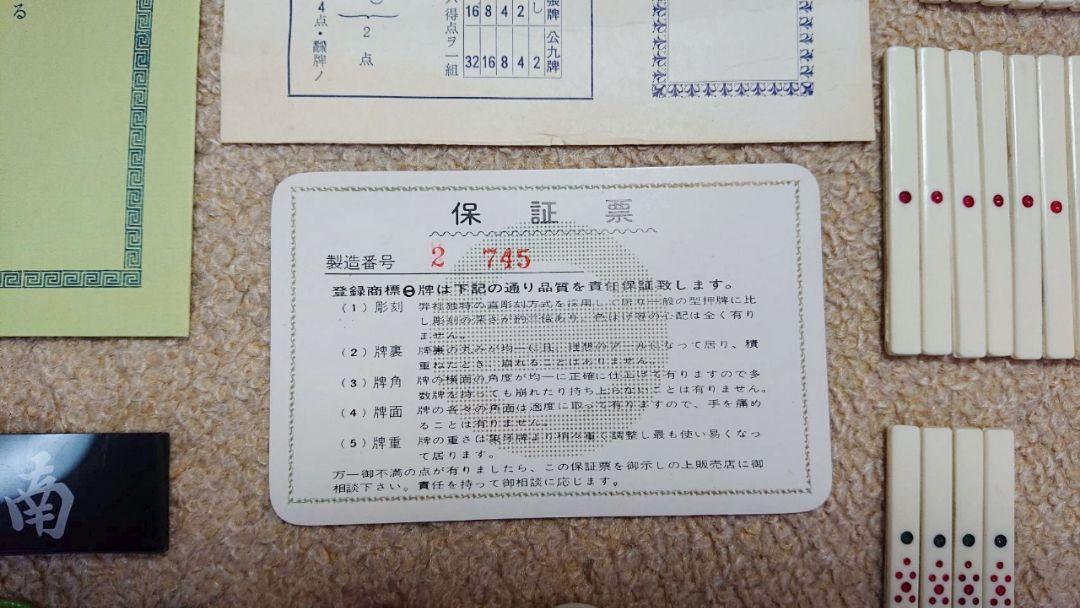 る
4点・飜牌ノ
2点
得点ヲ一組
16 8 4 2 し 張牌
32 16 8 4 2 公九牌
保証票
製造番号 2 745
登録商標㊀牌は下記の通り品質を責任保証致します。
(1) 彫刻 弊社独特の直彫刻方式を採用し、居り一般の型押牌に比
し彫刻の深さが約三倍あり、色はげ等の心配は全く有り
ません。
(2) 牌裏 牌裏の丸みが均一し且、理想のアールになって居り、積
重ねたとき、崩れることはありません。
(3) 牌角 牌の横面の角度が均一に正確に仕上げて有りますので多
数牌を持っても崩れたり持ち上らないことは有りません。
(4) 牌面 牌の各々の角面は適度に取って有りますので、手を痛め
ることは有りません。
(5) 牌重 牌の重さは集牙牌より稍々重く調整し最も使い易くなっ
て居ります。
万一御不満の点が有りましたら、この保証票を御示しの上販売店に御
相談下さい。責任を持って御相談に応じます。
南